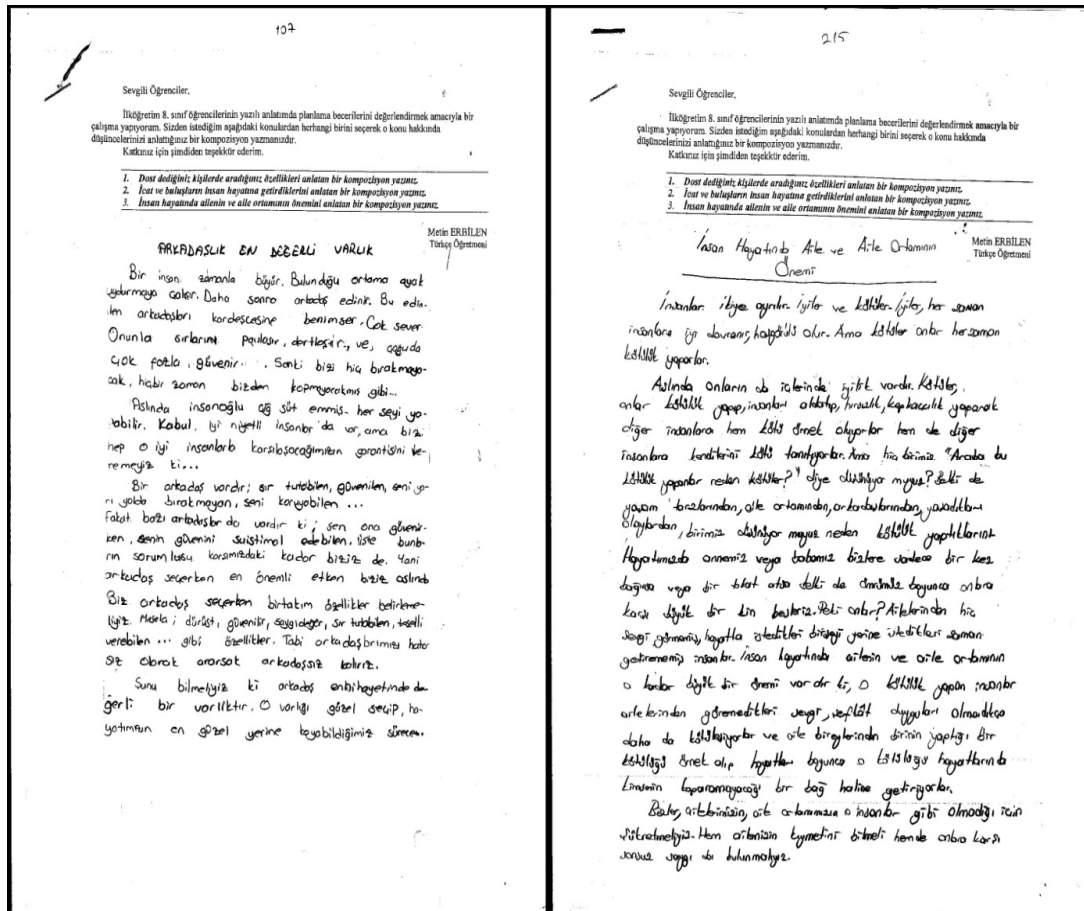 107
Sevgili Öğrenciler,
İlköğretim 8. sınıf öğrencilerinin yazılı anlatımda planlama becerilerini değerlendirmek amacıyla bir
çalışma yapıyorum. Sizden istediğim aşağıdaki konulardan herhangi birini seçerek o konu hakkında
düşüncelerinizi anlattığınız bir kompozisyon yazmanızdır.
Katkınız için şimdiden teşekkür ederim.
1. Dost dediğiniz kişilerde aradığınız özellikleri anlatan bir kompozisyon yazınız.
2. İcat ve buluşların insan hayatına getirdiklerini anlatan bir kompozisyon yazınız.
3. İnsan hayatında ailenin ve aile ortamının önemini anlatan bir kompozisyon yazınız.
Metin ERBİLEN
Türkçe Öğretmeni
ARKADAŞLIK EN DEĞERLİ VARLIK
Bir insan zamanla büyür. Bulunduğu ortama ayak
uydurmaya çalışır. Daha sonra arkadaş edinir. Bu edin-
ilen arkadaşları kardeşcesine benimser. Çok sever
Onunla sırlarını paylaşır, dertleşir, ve,
çok fazla, güvenir... Sanki bizi hiç bırakmaya-
cak, hiçbir zaman bizden kopmayacakmış gibi...
Aslında insanoğlu çiğ süt emmiş. her şeyi ya-
pabilir. Kabul. iyi niyetli insanlar da var, ama bizi
hep o iyi insanlarla karşılaşacağımızın garantisini ve-
remeyiz ki...
Bir arkadaş vardır; sır tutabilen, güvenilen, seni ya-
rı yolda bırakmayan, seni koruyabilen ...
Fakat bazı arkadaşlar da vardır ki; sen ona güvenir-
ken, senin güvenini suistimal edebilen. işte bunla-
rın sorumlusu karşımızdaki kadar biziz de. Yani
arkadaş seçerken en önemli etken biziz aslında
Biz arkadaş seçerken birtakım özellikler belirleme-
liyiz. Mesela; dürüst, güvenilir, saygıdeğer, sır tutabilen, teselli
verebilen ... gibi özellikler. Tabi arkadaşlarımızı hata
sız olarak ararsak arkadaşsız kalırız.
Şunu bilmeliyiz ki arkadaş hayatında de-
ğerli bir varlıktır. O varlığı güzel seçip, ha-
yatımızın en güzel yerine koyabildiğimiz sürece...
215
Sevgili Öğrenciler,
İlköğretim 8. sınıf öğrencilerinin yazılı anlatımda planlama becerilerini değerlendirmek amacıyla bir
çalışma yapıyorum. Sizden istediğim aşağıdaki konulardan herhangi birini seçerek o konu hakkında
düşüncelerinizi anlattığınız bir kompozisyon yazmanızdır.
Katkınız için şimdiden teşekkür ederim.
1. Dost dediğiniz kişilerde aradığınız özellikleri anlatan bir kompozisyon yazınız.
2. İcat ve buluşların insan hayatına getirdiklerini anlatan bir kompozisyon yazınız.
3. İnsan hayatında ailenin ve aile ortamının önemini anlatan bir kompozisyon yazınız.
Metin ERBİLEN
Türkçe Öğretmeni
İnsan Hayatında Aile ve Aile Ortamının
Önemi
İnsanlar ikiye ayrılır. İyiler ve kötüler. İyiler, her zaman
insanlara iyi davranır, hoşgörülü olur. Ama kötüler onlar her zaman
kötülük yaparlar.
Aslında onların da içlerinde iyilik vardır. Kötüler,
onlar kötülük yapıp, insanları aldatıp, hırsızlık, kapkaççılık yaparak
diğer insanlara hem kötü örnek oluyorlar hem de diğer
insanlara kendilerini kötü tanıtıyorlar. Ama hiç birimiz "Acaba bu
kötülük yapanlar neden kötüler?" diye düşünüyor muyuz? Belki de
yaşam tarzlarından, aile ortamından, arkadaşlarından, yaşadıkları
olaylardan, birimiz düşünüyor muyuz neden kötülük yaptıklarını
Hayatımızda annemiz veya babamız bizlere sadece bir kez
bağırsa veya bir tokat atsa belki de ömrümüz boyunca onlara
karşı büyük bir kin besleriz. Peki onlar? Ailelerinden hiç
sevgi görmemiş, hayatla istedikleri birşeyi yerine istedikleri zaman
getirememiş insanlar. İnsan hayatında ailenin ve aile ortamının
o kadar büyük bir önemi vardır ki, o kötülük yapan insanlar
ailelerinden göremedikleri sevgi, şefkât duyguları olmadıkça
daha da kötüleşiyorlar ve aile bireylerinden birinin yaptığı bir
kötülüğü örnek alıp hayatları boyunca o kötülüğü hayatlarında
kimsenin koparamayacağı bir bağ haline getiriyorlar.
Bizler, ailelerimizin, aile ortamımızın o insanlar gibi olmadığı için
şükretmeliyiz. Hem ailemizin kıymetini bilmeli hemde onlara karşı
sonsuz saygı da bulunmalıyız.